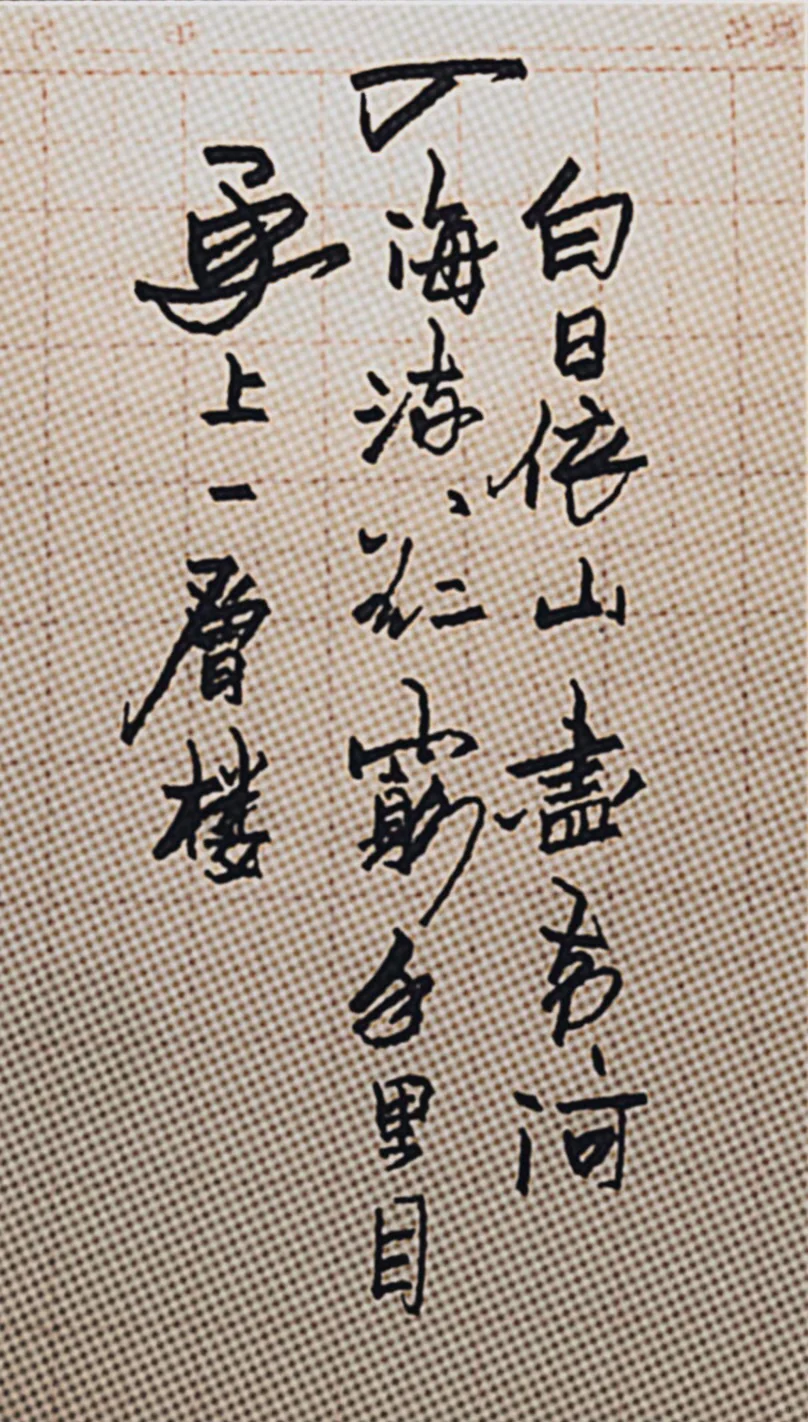 白日依山盡黄河
入海流、欲窮千里目
更上一層楼